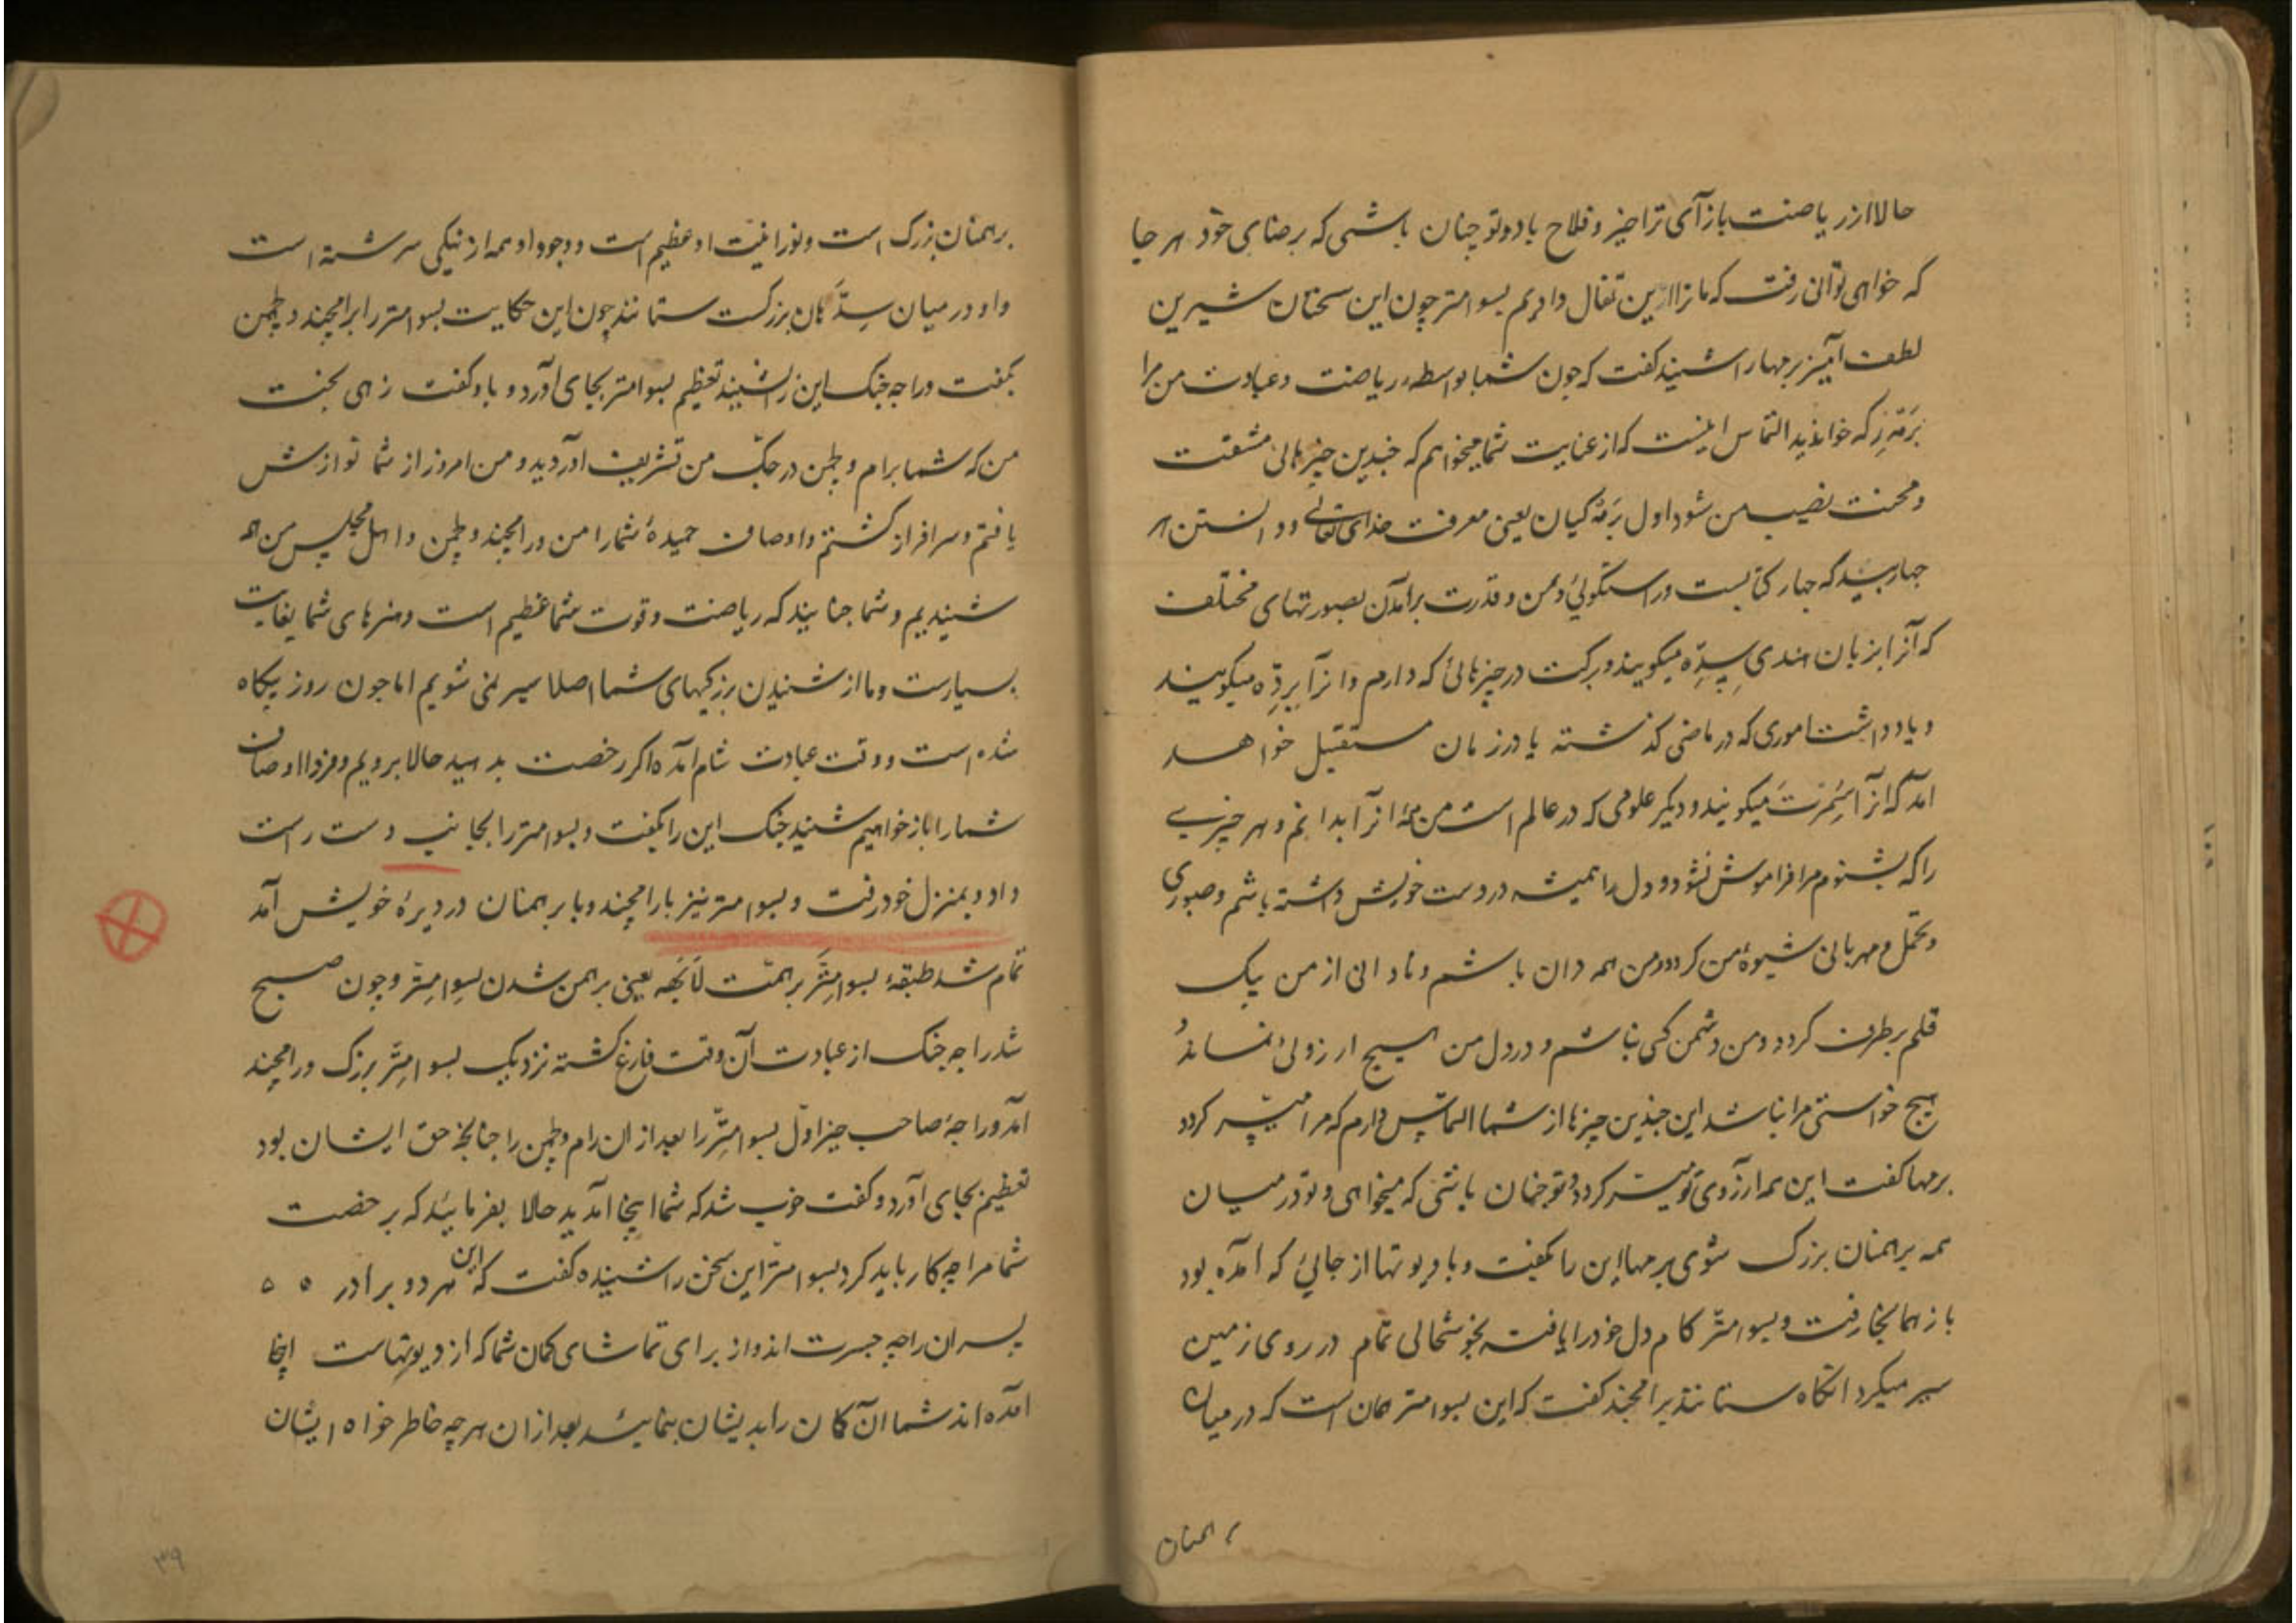 حالا از ریاضت باز آی ترا خیر و فلاح باد و تو چنان باشی که برضای خود هر جا
که خواهی توانی رفت که ما ترا ازین تفال داریم بسوامتر چون این سخنان شیرین
لطف آمیز برمها را شنید گفت که چون شما بواسطه ریاضت و عبادت من مرا
برمه رکه خواندید التماس اینست که از عنایت شما میخواهم که چندین چیزها بی مشقت
و محنت نصیب من شود اول برمه گیان یعنی معرفت خدای تعالی و دانستن هر
چهار بید که چهار کتابست و راستگوئی و من و قدرت برآمدن بصورتهای مختلف
که آنرا بزبان هندی سده میگویند و برکت در چیزهائی که دارم و آنرا برده میگویند
و یادداشت اموری که در ماضی گذشته یا در زمان مستقبل خواهد
آمد که آنرا سمرت میگویند و دیگر علومی که در عالم است من همه آنرا بدانم و هر چیزی
را که بشنوم مرا فراموش نشود و دل را همیشه در دست خویش داشته باشم و صبوری
و تحمل و مهربانی شیوهٔ من گردد و من همه دان باشم و نادانی از من یک
قلم برطرف گردد و من دشمن کسی نباشم و در دل من هیچ آرزوئی نماند
هیچ خواستی مرا نباشد این چندین چیزها از شما التماس دارم که مرا میسر گردد
برمها گفت این همه آرزوی تو میسر گردد و تو چنان باشی که میخواهی و تو در میان
همه برهمنان بزرگ شوی برمها این را بگفت و با دیوتها از جائی که آمده بود
باز همانجا رفت و بسوامتر کام دل خود را یافته بخوشحالی تمام در روی زمین
سیر میکرد انگاه ستانند برامچند گفت که این بسوامتر همان است که در میان
برهمنان
برهمنان بزرگ است و نورانیت او عظیم است و وجود او همه از نیکی سرشته است
و او در میان سدهان بزرگست ستانند چون این حکایت بسوامتر را برامچند و لچمن
بگفت و راجه جنک این را شنید تعظیم بسوامتر بجای آورد و باو گفت زهی بخت
من که شما برام و لچمن در جگ من تشریف آوردید و من امروز از شما نوازش
یافتم و سرافراز گشتم و اوصاف حمیدهٔ شما را من و رامچند و لچمن و اهل مجلس من همه
شنیدیم و شما چنانید که ریاضت و قوت شما عظیم است و هنرهای شما بغایت
بسیارست و ما از شنیدن بزرگیهای شما اصلا سیر نمی شویم اما چون روز بیگاه
شده است و وقت عبادت شام آمده اگر رخصت بدهید حالا برویم و فردا اوصاف
شما را باز خواهیم شنید جنک این را بگفت و بسوامتر را بجانب دست راست
داد و بمنزل خود رفت و بسوامتر نیز با رامچند و با برهمنان در دیرهٔ خویش آمد
تمام شد طبقهٔ بسوامتر برهمت لابهه یعنی برهمن شدن بسوامتر و چون صبح
شد راجه جنک از عبادت آن وقت فارغ گشته نزدیک بسوامتر بزرگ و رامچند
آمد و راجهٔ صاحب خیر اول بسوامتر را بعد ازان رام و لچمن را چنانچه حق ایشان بود
تعظیم بجای آورد و گفت خوب شد که شما اینجا آمدید حالا بفرمائید که برخصت
شما مرا چه کار باید کرد بسوامتر این سخن را شنیده گفت که این هر دو برادر ه ه
پسران راجه جسرت اند و از برای تماشای کمان شما که از دیوتهاست اینجا
آمده اند شما آن کمان را بدیشان بنمائید بعد ازان هر چه خاطر خواه ایشان
۳۹